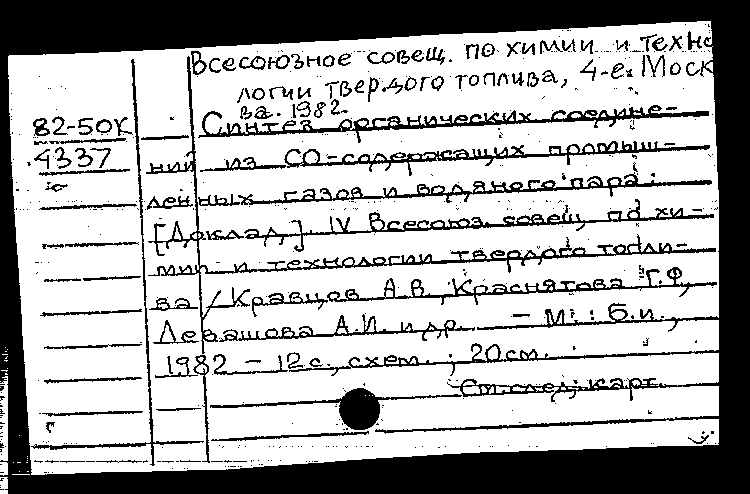 Всесоюзное совещ. по химии и техно
логии твердого топлива, 4-е. Моск
ва. 1982.
82-50К
4337
Синтез органических соедине-
ний из СО-содержащих промыш-
ленных газов и водяного пара:
[Доклад]. IV Всесоюз. совещ. по хи-
мии и технологии твердого топли-
ва / Кравцов А.В., Краснятова Г.Ф.,
Левашова А.И. и др. – М.: Б.и.,
1982 – 12 с., схем. ; 20 см.
См. след. карт.